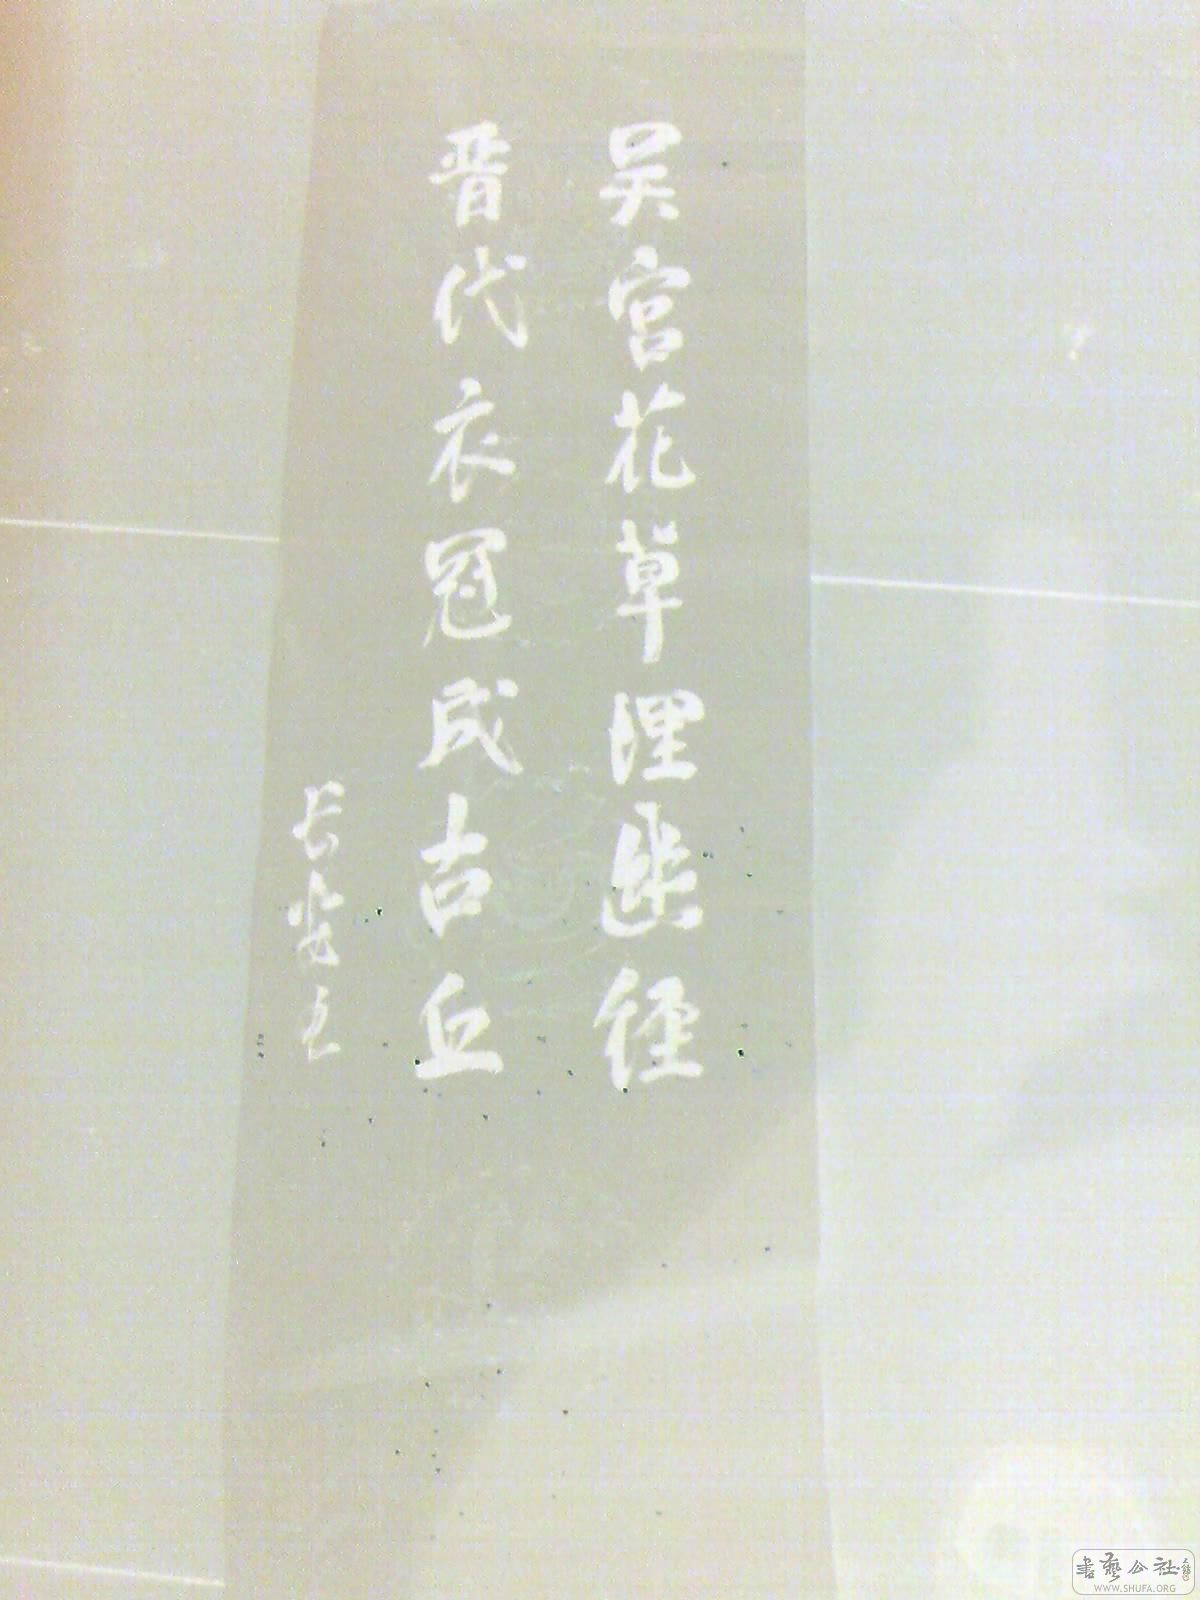 吴宫花草埋幽径
晋代衣冠成古丘
书艺公社
WWW.SHUFA.ORG